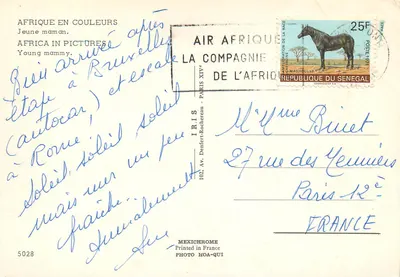 AFRIQUE EN COULEURS
Jeune maman.
AFRICA IN PICTURES
Young mammy.
Bien arrivée après
étape à Bruxelles
(autocar) et escale
à Rome,
Soleil, soleil, soleil
mais mer un peu
fraîche.
Amicalement
5028
IRIS
102, Av. Denfert-Rochereau - PARIS XIVe
MEXICHROME
Printed in France
PHOTO HOA-QUI
AIR AFRIQUE
LA COMPAGNIE
DE L'AFRIQ
25F
REPUBLIQUE DU SENEGAL
M. Mme Binet
27 rue des Meuniers
Paris 12e
FRANCE